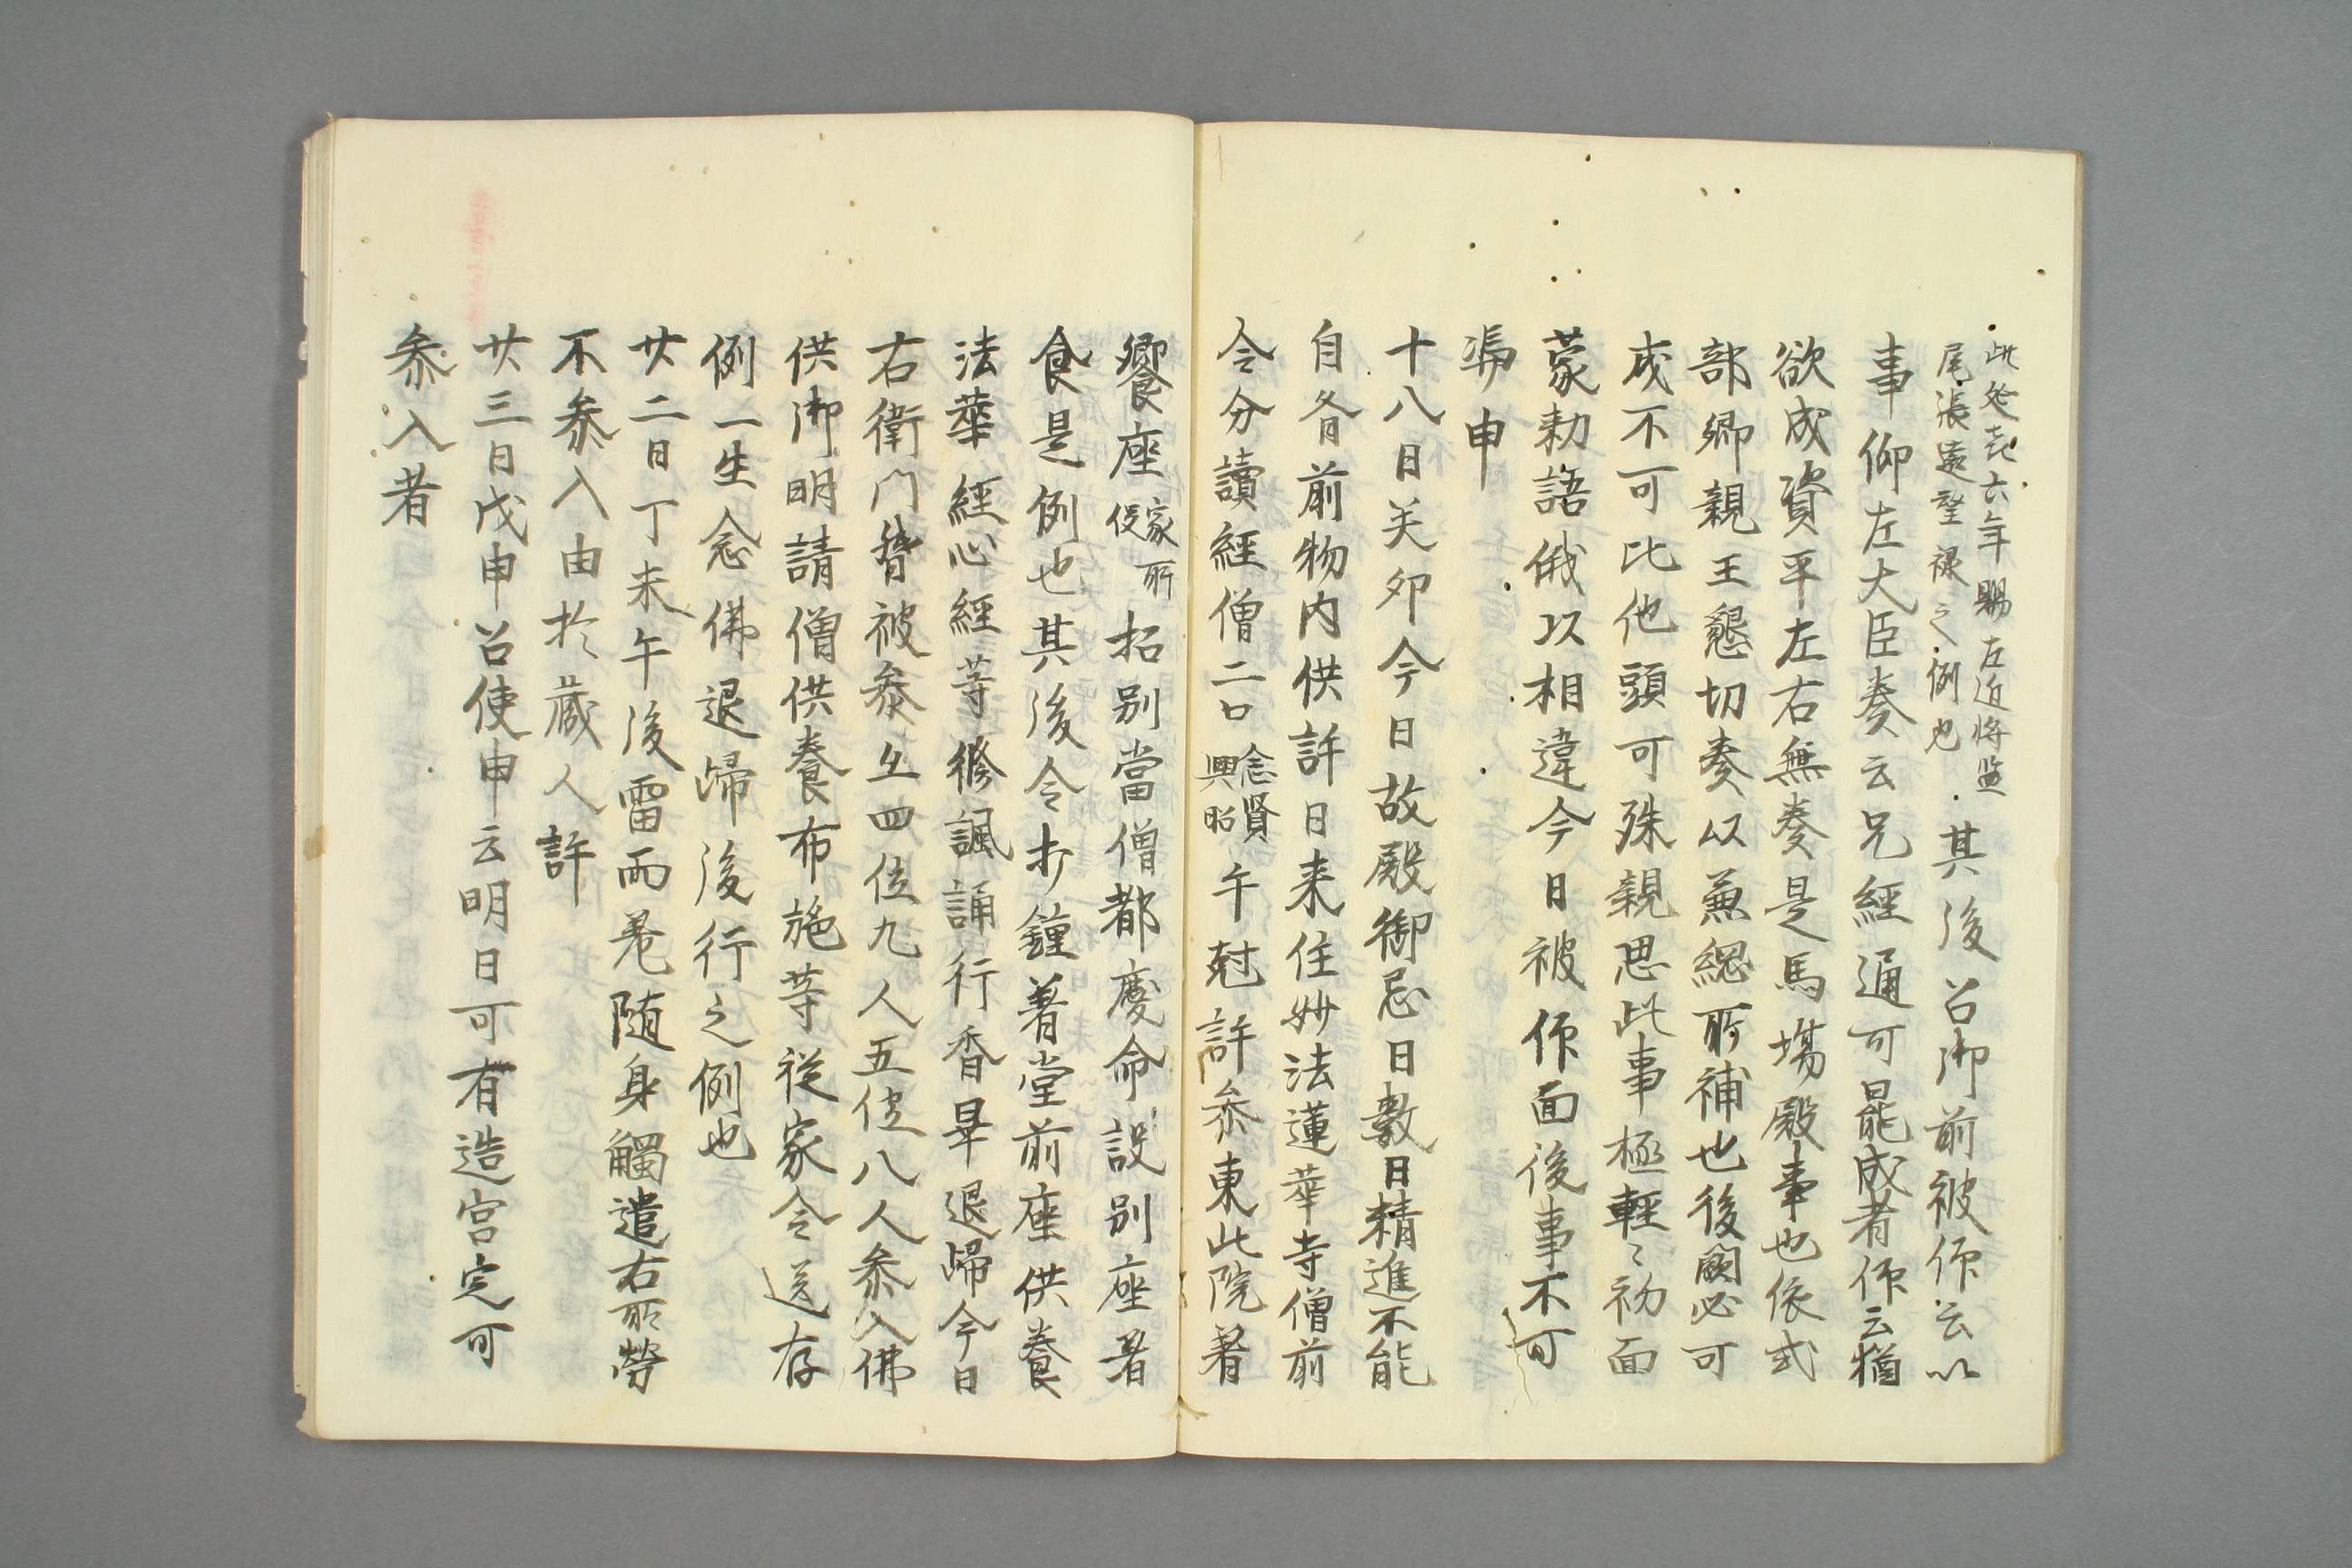 此処延六年賜左近将監
尾張遠望禄之例也
其後召御前被仰云以
事仰左大臣奏云兄經通可罷成者仰云猶
欲成資平左右無奏是馬場殿事也依式
部卿親王懇切奏以兼綱所補也後闕必可
成不可比他頭可殊親思此事極輕〻初面
蒙勅語俄以相違今日被仰面後事不可
馮申
十八日癸卯今日故殿御忌日數日精進不能
自斉前物内供許日来住妙法蓮華寺僧前
令分讀經僧二口
念賢
興昭
午剋許参東北院著
饗座
家所
儲
招別當僧都慶命設別座著
食是例也其後令打鐘著堂前座供養
法華經心經等修諷誦行香畢退歸今日
右衛門督被参上四位九人五位八人参入佛
供御明請僧供養布施等從家令送存
例一生念佛退歸後行之例也
廿二日丁未午後雷雨巻随身觸遣右所勞
不参入由於蔵人許
廿三日戊申召使申云明日可有造宮定可
参入者